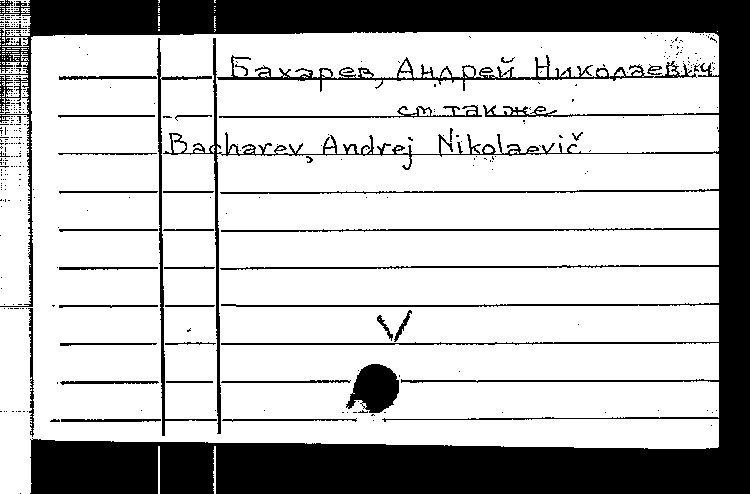 Бахарев, Андрей Николаевич
см также
Bacharev, Andrej Nikolaevič